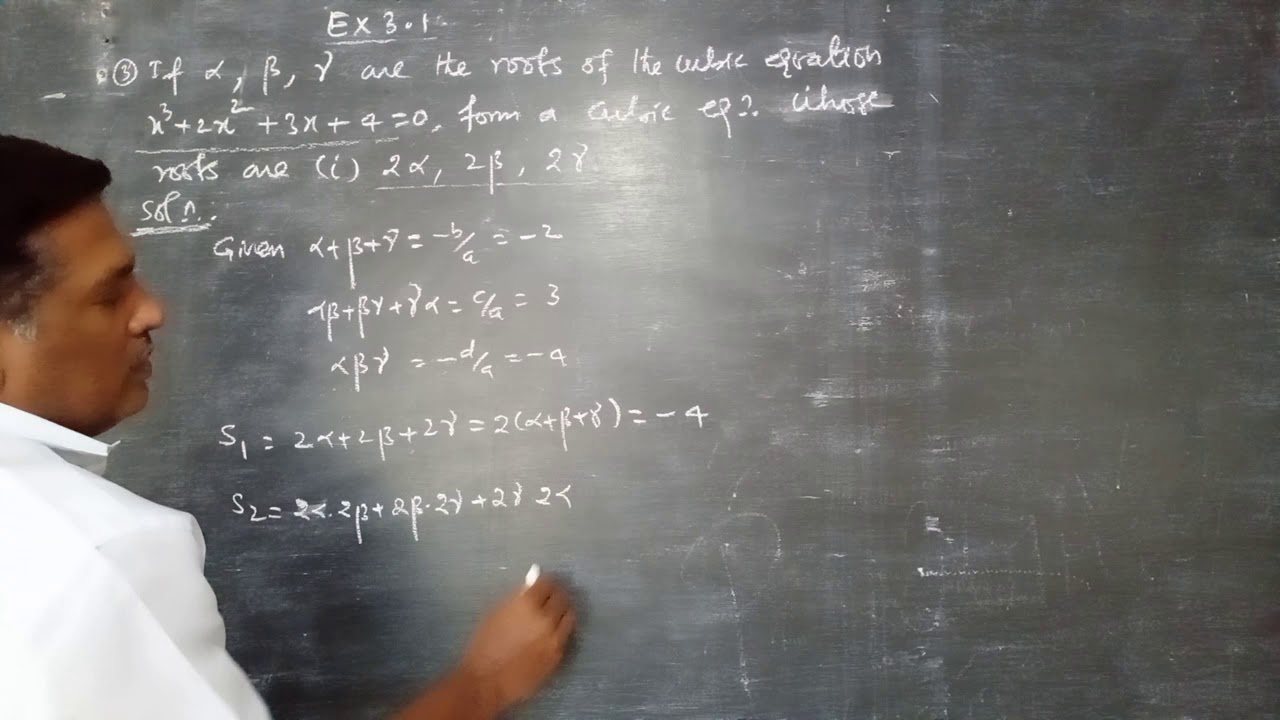 Ex 3.1
③ If α, β, γ are the roots of the cubic equation
x³+2x²+3x+4=0, form a cubic eqn. whose
roots are (i) 2α, 2β, 2γ.
Soln.:
Given α+β+γ = -b/a = -2
αβ+βγ+γα = c/a = 3
αβγ = -d/a = -4
S₁ = 2α+2β+2γ = 2(α+β+γ) = -4
S₂ = 2α.2β+2β.2γ+2γ 2α